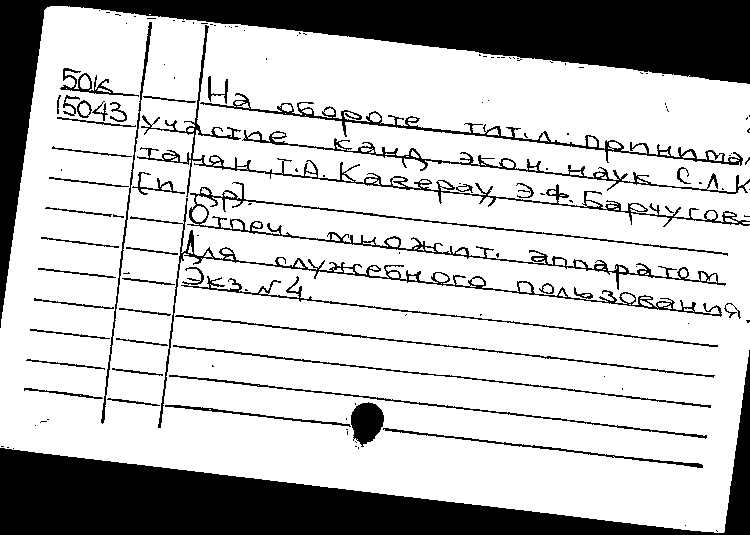 50к
15043
На обороте тит.л.: принима
участие канд. экон. наук С.Л.К
танян, Т.А. Каверау, Э.Ф. Барчугова
[и др].
Отпеч. множит. аппаратом
Для служебного пользования.
Экз. № 4.